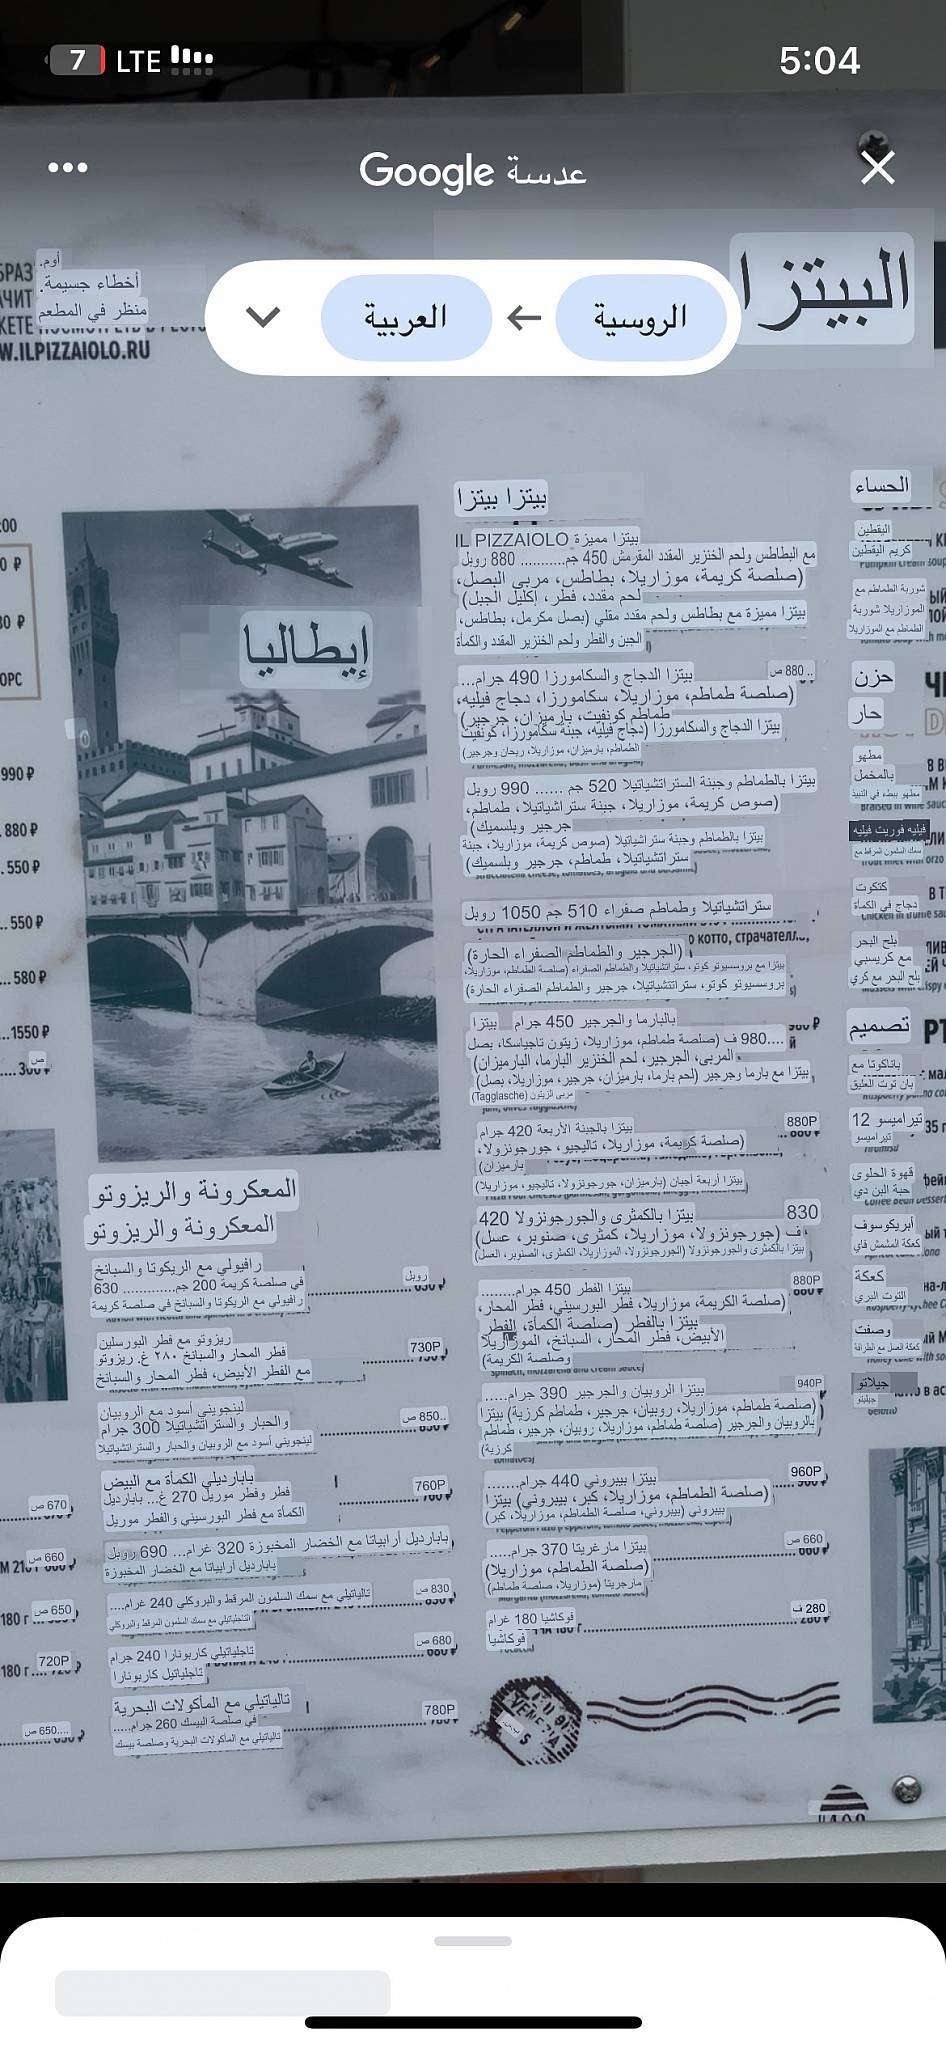 7 LTE
5:04
Google عدسة
أوم.
أخطاء جسيمة.
منظر في المطعم
W.ILPIZZAIOLO.RU
العربية
الروسية
البيتزا
إيطاليا
990 ₽
880 ₽
550 ₽
550 ₽
580 ₽
1550 ₽
بيتزا بيتزا
بيتزا مميزة IL PIZZAIOLO
مع البطاطس ولحم الخنزير المقدد المقرمش 450 جم........... 880 روبل
(صلصة كريمة، موزاريلا، بطاطس، مربى البصل،
لحم مقدد، فطر، إكليل الجبل)
بيتزا مميزة مع بطاطس ولحم مقدد مقلي (بصل مكرمل، بطاطس،
الجبن والفطر ولحم الخنزير المقدد والكمأة
بيتزا الدجاج والسكامورزا 490 جرام...
880 ص..
(صلصة طماطم، موزاريلا، سكامورزا، دجاج فيليه،
طماطم كونفيت، بارميزان، جرجير)
بيتزا الدجاج والسكامورزا (دجاج فيليه، جبنة سكامورزا، كونفيت
الطماطم، بارميزان، موزاريلا، ريحان وجرجير)
بيتزا بالطماطم وجبنة الستراتشياتيلا 520 جم ...... 990 روبل
(صوص كريمة، موزاريلا، جبنة ستراشياتيلا، طماطم،
جرجير وبلسميك)
بيتزا بالطماطم وجبنة ستراشياتيلا (صوص كريمة، موزاريلا، جبنة
ستراتشياتيلا، طماطم، جرجير وبلسميك)
ستراتشياتيلا وطماطم صفراء 510 جم 1050 روبل
(الجرجير والطماطم الصفراء الحارة)
بيتزا مع بروسيوتو كوتو، ستراتشياتيلا والطماطم الصفراء (صلصة الطماطم، موزاريلا،
بروسسيوتو كوتو، ستراتتشياتيلا، جرجير والطماطم الصفراء الحارة)
بيتزا بالبارما والجرجير 450 جرام
980.... ف (صلصة طماطم، موزاريلا، زيتون تاجياسكا، بصل
المربى، الجرجير، لحم الخنزير البارما، البارميزان)
بيتزا مع بارما وجرجير (لحم بارما، بارميزان، جرجير، موزاريلا، بصل)
مربى الزيتون (Tagglasche)
بيتزا بالجبنة الأربعة 420 جرام
880P
(صلصة كريمة، موزاريلا، تاليجيو، جورجونزولا،
بارميزان)
بيتزا أربعة أجبان (بارميزان، جورجونزولا، تاليجيو، موزاريلا)
بيتزا بالكمثرى والجورجونزولا 420
830
ف (جورجونزولا، موزاريلا، كمثرى، صنوبر، عسل)
بيتزا بالكمثرى والجورجونزولا (الجورجونزولا، الموزاريلا، الكمثرى، الصنوبر، العسل)
بيتزا الفطر 450 جرام........
880P
(صلصة الكريمة، موزاريلا، فطر البورسيني، فطر المحار،
بيتزا بالفطر (صلصة الكمأة، الفطر
الأبيض، فطر المحار، السبانخ، الموزاريلا
وصلصة الكريمة)
بيتزا الروبيان والجرجير 390 جرام.....
940P
(صلصة طماطم، موزاريلا، روبيان، جرجير، طماطم كرزية) بيتزا
بالروبيان والجرجير (صلصة طماطم، موزاريلا، روبيان، جرجير، طماطم
كرزية)
بيتزا بيبروني 440 جرام.......
960P
(صلصة الطماطم، موزاريلا، كبر، بيبروني) بيتزا
بيبروني (بيبروني، صلصة الطماطم، موزاريلا، كبر)
بيتزا مارغريتا 370 جرام.....
660 ص
(صلصة الطماطم، موزاريلا)
مارجريتا (موزاريلا، صلصة طماطم)
فوكاشيا 180 غرام
280 ف
فوكاشيا
المعكرونة والريزوتو
المعكرونة والريزوتو
رافيولي مع الريكوتا والسبانخ
روبل
في صلصة كريمة 200 جم............ 630
رافيولي مع الريكوتا والسبانخ في صلصة كريمة
ريزوتو مع فطر البورسلين
730P
فطر المحار والسبانخ ٢٨٠ غ. ريزوتو
مع الفطر الأبيض، فطر المحار والسبانخ
لينجويني أسود مع الروبيان
850.. ص
والحبار والستراتشياتيلا 300 جرام
لينجويني أسود مع الروبيان والحبار والستراتشياتيلا
بابارديلي الكمأة مع البيض
760P
فطر وفطر موريل 270 غ... بابارديل
الكمأة مع فطر البورسيني والفطر موريل
بابارديل أرابياتا مع الخضار المخبوزة 320 غرام... 690 روبل
بابارديل أرابياتا مع الخضار المخبوزة
تالياتيلي مع سمك السلمون المرقط والبروكلي 240 غرام....
830 ص
التاجلياتيلي مع سمك السلمون المرقط والبروكلي
تاجلياتيلي كاربونارا 240 جرام
680 ص
تاجلياتيل كاربونارا
تالياتيلي مع المأكولات البحرية
780P
في صلصة البيسك 260 جرام.....
تالياتيلي مع المأكولات البحرية وصلصة بيسك
670 ص
660 ص
180 г
650 ص
180 г
720P
650.... ص
الحساء
اليقطين
كريم اليقطين
Pumpkin cream soup
شوربة الطماطم مع
الموزاريلا شوربة
الطماطم مع الموزاريلا
حزن
حار
مطهو
بالمخمل
مطهو ببطء في النبيذ
فيليه فوريت فيليه
سمك السلمون المرقط مع
كتكوت
دجاج في الكمأة
بلح البحر
مع كريسبي
بلح البحر مع كري
تصميم
باناكوتا مع
بان توت العليق
تيراميسو 12
تيراميسو
قهوة الحلوى
حبة البن دي
أبريكوسوف
كعكة المشمش فاي
كعكة
التوت البري
وصفت
كعكة العسل مع الطراقة
جيلاتو
جيليتو